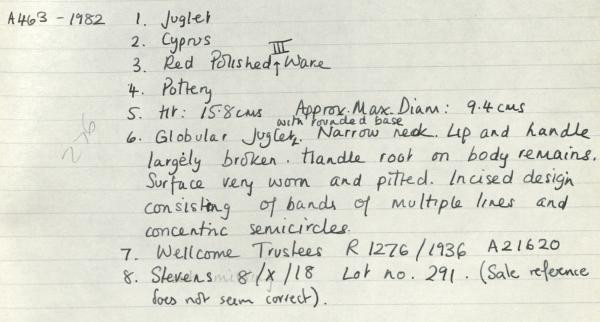 A463-1982 1. Juglet
2. Cyprus
3. Red Polished III Ware
4. Pottery
5. Ht: 15.8cms Approx. Max. Diam: 9.4cms
6. Globular Juglet with rounded base. Narrow neck. Lip and handle
largely broken. Handle root on body remains.
Surface very worn and pitted. Incised design
consisting of bands of multiple lines and
concentric semicircles.
7. Wellcome Trustees R 1276/1936 A21620
8. Stevens 8/X/18 Lot no. 291. (Sale reference
does not seem correct).
276